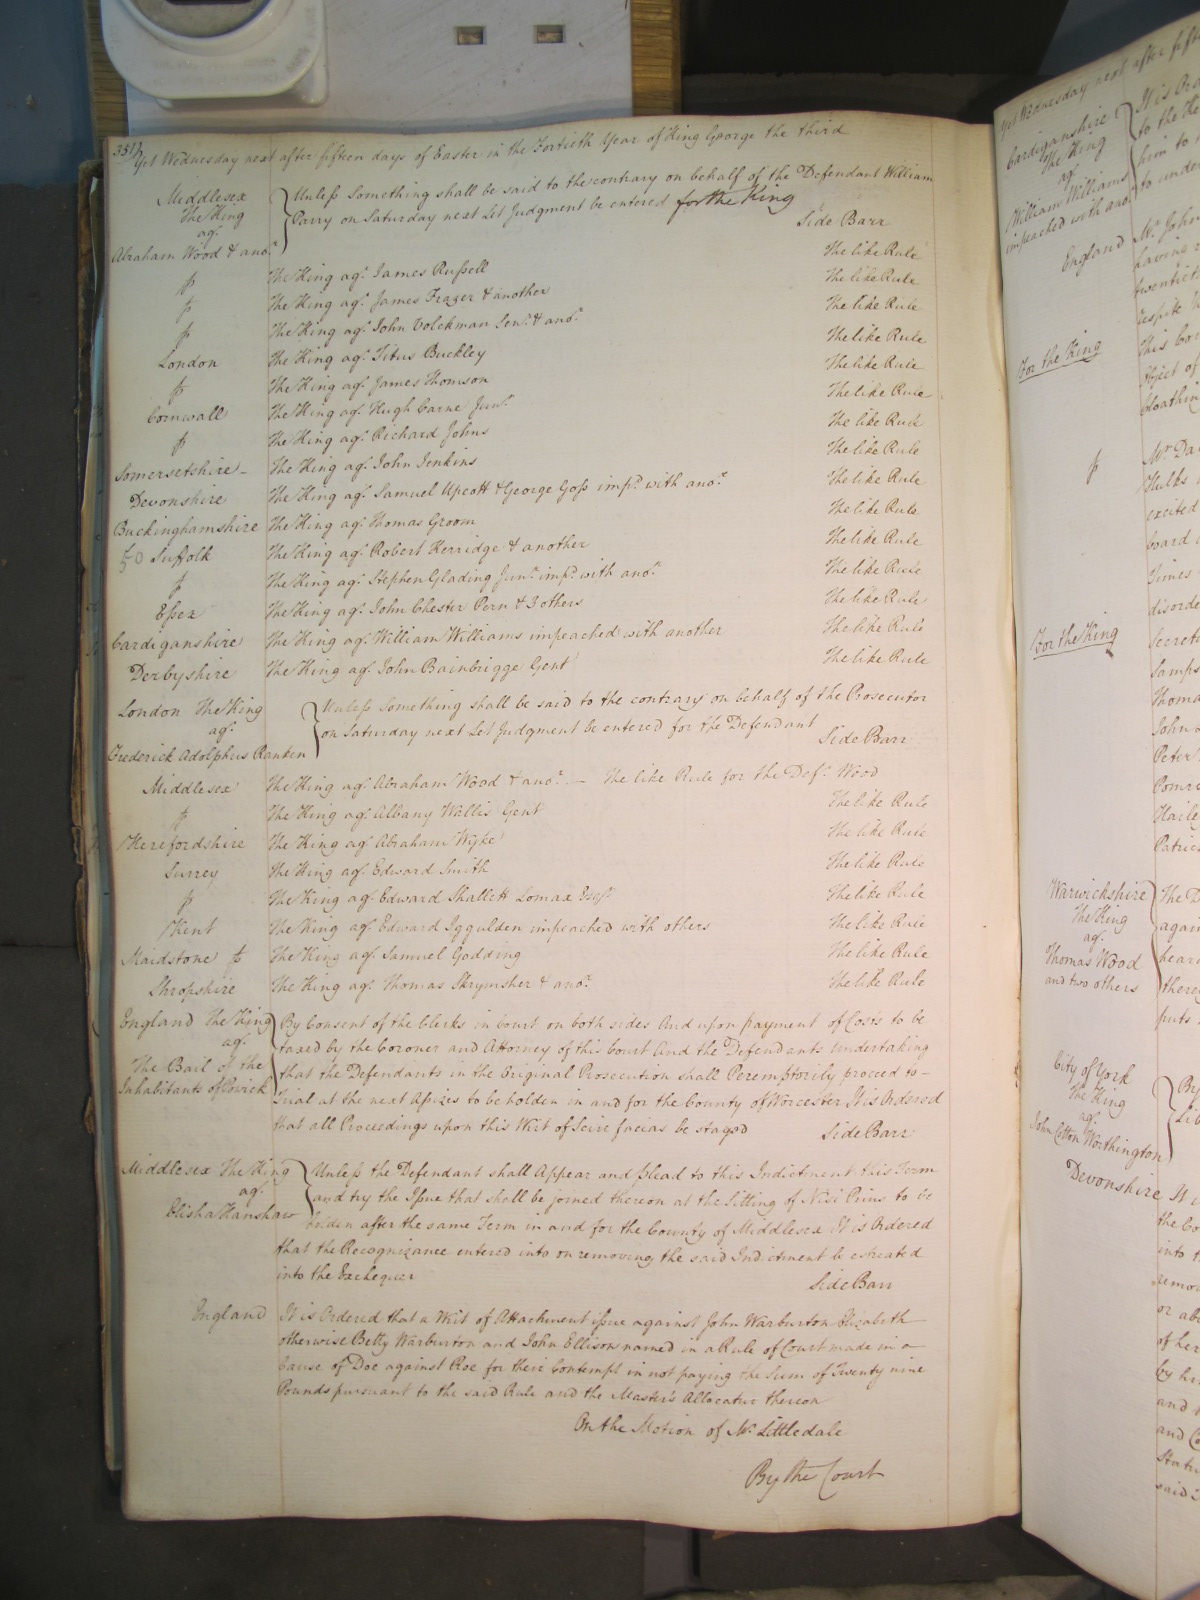 351
Yet Wednesday next after fifteen days of Easter in the Fortieth Year of King George the third
Middlesex
The King
agt
Abraham Wood & anor
Unless Something shall be said to the contrary on behalf of the Defendant William
Parry on Saturday next Let Judgment be entered for the King
Side Barr
The like Rule
The King agt James Russell The like Rule
The King agt James Frazer & another The like Rule
The King agt John Volckman Senr & anor The like Rule
London The King agt Titus Buckley The like Rule
The King agt James Thomson The like Rule
Cornwall The King agt Hugh Carne Junr The like Rule
The King agt Richard Johns The like Rule
Somersetshire The King agt John Jenkins The like Rule
Devonshire The King agt Samuel Upcott & George Goss impd with anor The like Rule
Buckinghamshire The King agt Thomas Groom The like Rule
Suffolk The King agt Robert Kerridge & another The like Rule
The King agt Stephen Glading Junr impd with anor The like Rule
Essex The King agt John Chester Pern & 3 others The like Rule
Cardiganshire The King agt William Williams impeached with another The like Rule
Derbyshire The King agt John Bainbrigge Gent The like Rule
London The King
agt
Frederick Adolphus Ranken
Unless Something shall be said to the contrary on behalf of the Prosecutor
on Saturday next Let Judgment be entered for the Defendant
Side Barr
Middlesex The King agt Abraham Wood & anor – The like Rule for the Deft Wood
The King agt Albany Wallis Gent The like Rule
Herefordshire The King agt Abraham Wyke The like Rule
Surrey The King agt Edward Smith The like Rule
The King agt Edward Shallett Lomax Esqr The like Rule
Kent The King agt Edward Iggulden impeached with others The like Rule
Maidstone The King agt Samuel Godding The like Rule
Shropshire The King agt Thomas Skrymsher & anor The like Rule
England The King
agt
The Bail of the
Inhabitants of Powick
By Consent of the Clerks in Court on both sides And upon payment of Costs to be
taxed by the Coroner and Attorney of this Court And the Defendants undertaking
that the Defendants in the Original Prosecution shall Peremptorily proceed to
Trial at the next Assizes to be holden in and for the County of Worcester It is Ordered
that all Proceedings upon this Writ of Scire facias be stayed
Side Barr
Middlesex The King
agt
Elisha Hanshaw
Unless the Defendant shall Appear and plead to this Indictment this Term
and try the Issue that shall be joined thereon at the Sitting of Nisi Prius to be
holden after the same Term in and for the County of Middlesex It is Ordered
that the Recognizance entered into on removing the said Indictment be estreated
into the Exchequer
Side Barr
England
It is Ordered that a Writ of Attachment issue against John Warburton Elizabeth
otherwise Betty Warburton and John Ellison named in a Rule of Court made in a
Cause of Doe against Roe for their Contempt in not paying the Sum of Twenty nine
Pounds pursuant to the said Rule and the Master's Allocatur thereon
On the Motion of Mr Littledale
By the Court
Yet Wednesday next after fift
Cardiganshire
The King
agt
William Williams
impeached with anor
It is Ord
to the
him to
to unde
England
Mr John
having
twentieth
respite
For the King
This
Object of
Mr Da
Hulks
excited
board
Times
disorde
For the King
Secret
Samps
Thoma
John
Peter
Pomr
Haile
Patric
Warwickshire
The King
agt
Thomas Wood
and two others
The D
again
heard
there
puts
City of York
The King
agt
John Cotton Worthington
By
Lib
Devonshire
It i
the Co
into t
remo
or ab
of her
by hi
and
and C
Statu
said